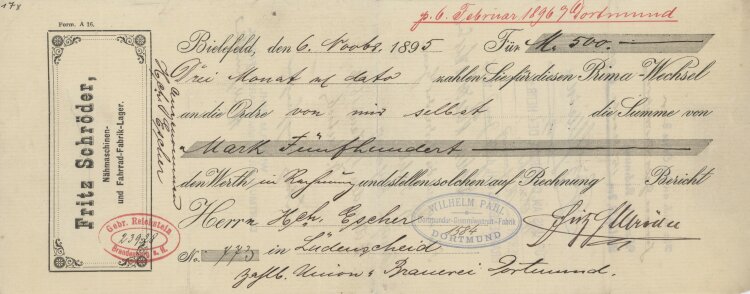 178
Form. A 16.
p. 6. Februar 1896 Dortmund
Bielefeld, den 6. Novbr. 1895 Für M. 500.
Drei Monat dato zahlen Sie für diesen Prima-Wechsel
an die Ordre von mir selbst die Summe von
Mark Fünfhundert
den Werth in Rechnung und stellen solchen auf Rechnung Bericht
Herrn Hch. Escher
No. 773 in Lüdenscheid
zahlb. Union-Brauerei Dortmund.
Fritz Schröder
Fritz Schröder,
Nähmaschinen-
und Fahrrad-Fabrik-Lager.
Angenommen
Hch. Escher
Gebr. Reichstein
Brandenburg a. H.
WILHELM PAHL
Dortmunder-Gummiwaaren-Fabrik
DORTMUND